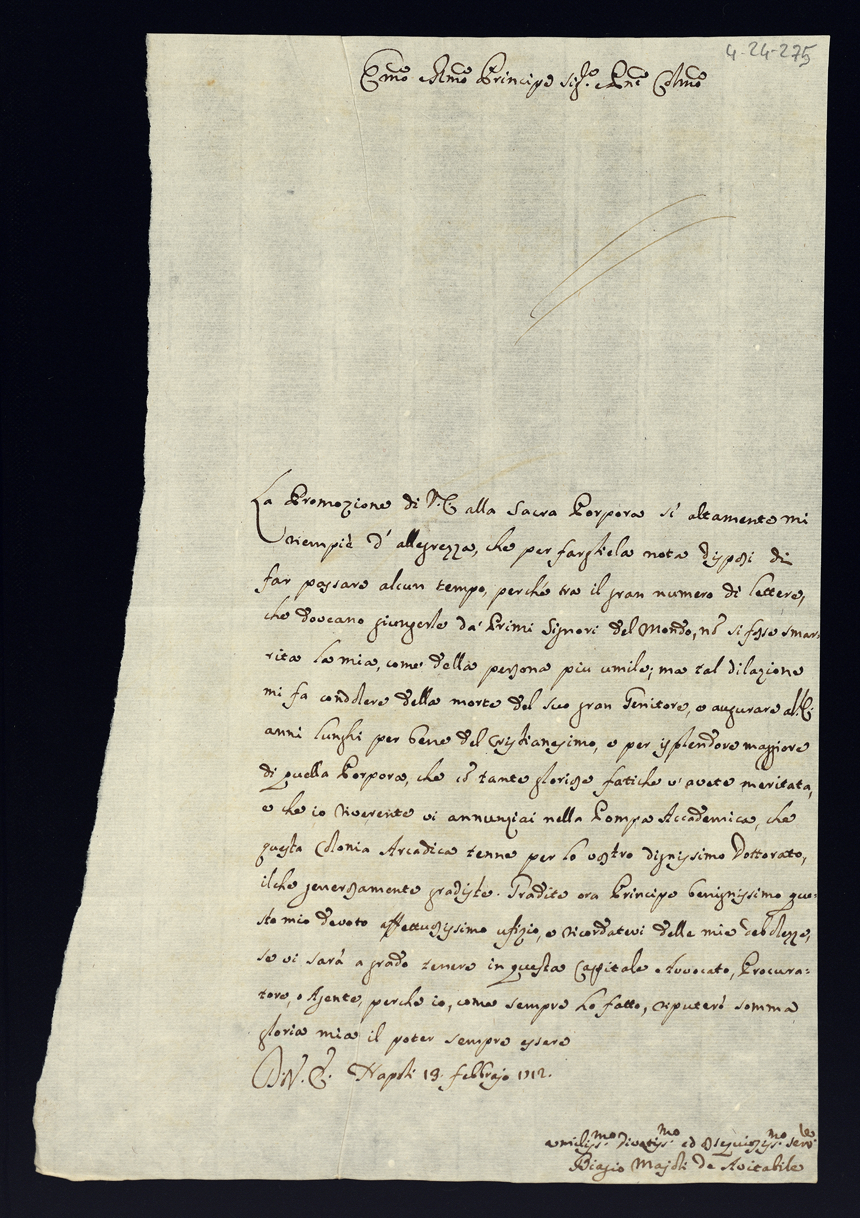 4-24-275
Emo e Rmo Principe Sigre e Pne Colmo
La Promozione di V.E. alla Sacra Porpora sì altamente mi
riempiè d'allegrezza, che per fargliela nota disposi di
far passare alcun tempo, perché tra il gran numero di lettere,
che doveano giungerle da' Primi Signori del Mondo, nõ si fosse smar-
rita la mia, come della persona più umile; ma tal dilazione
mi fa condolere della morte del suo gran Genitore, e augurare all'E.
anni lunghi per bene del Cristianesimo, e per isplendore maggiore
di quella Porpora, che cõ tante gloriose fatiche v'avete meritata,
e che io riverente vi annunziai nella Pompa Accademica, che
questa Colonia Arcadica tenne per lo vostro dignissimo Dottorato,
ilche generosamente gradiste. Gradite ora Principe benignissimo que-
sto mio devoto affettuosissimo ufizio, e ricordatevi delle mie debolezze,
se vi sarà a grado tenere in questa Capitale Avvocato, Procura-
tore, o Agente, perche io, come sempre ho fatto, riputerò somma
gloria mia il poter sempre essere
D. V. E. Napoli 19. Febbrajo 1712.
umiliss.mo Divotiss.mo ed Ossequiosiss.mo serv.re
Biagio Majoli de Avitabile